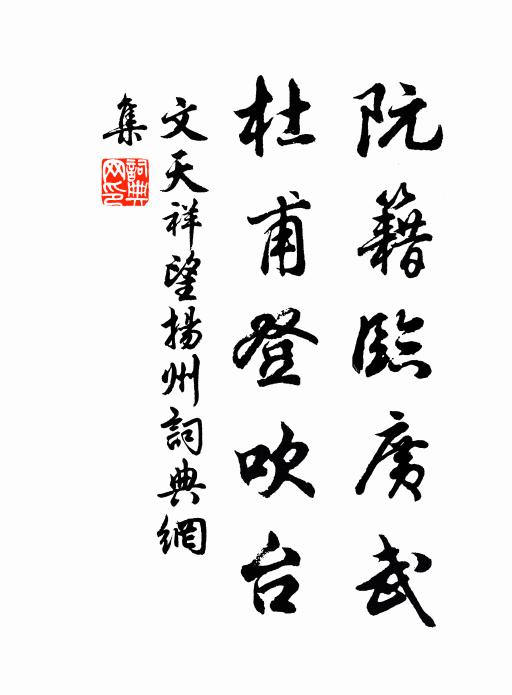 阮籍臨廣武
杜甫登吹台
文天祥望揚州詞典網
集
詞典网印